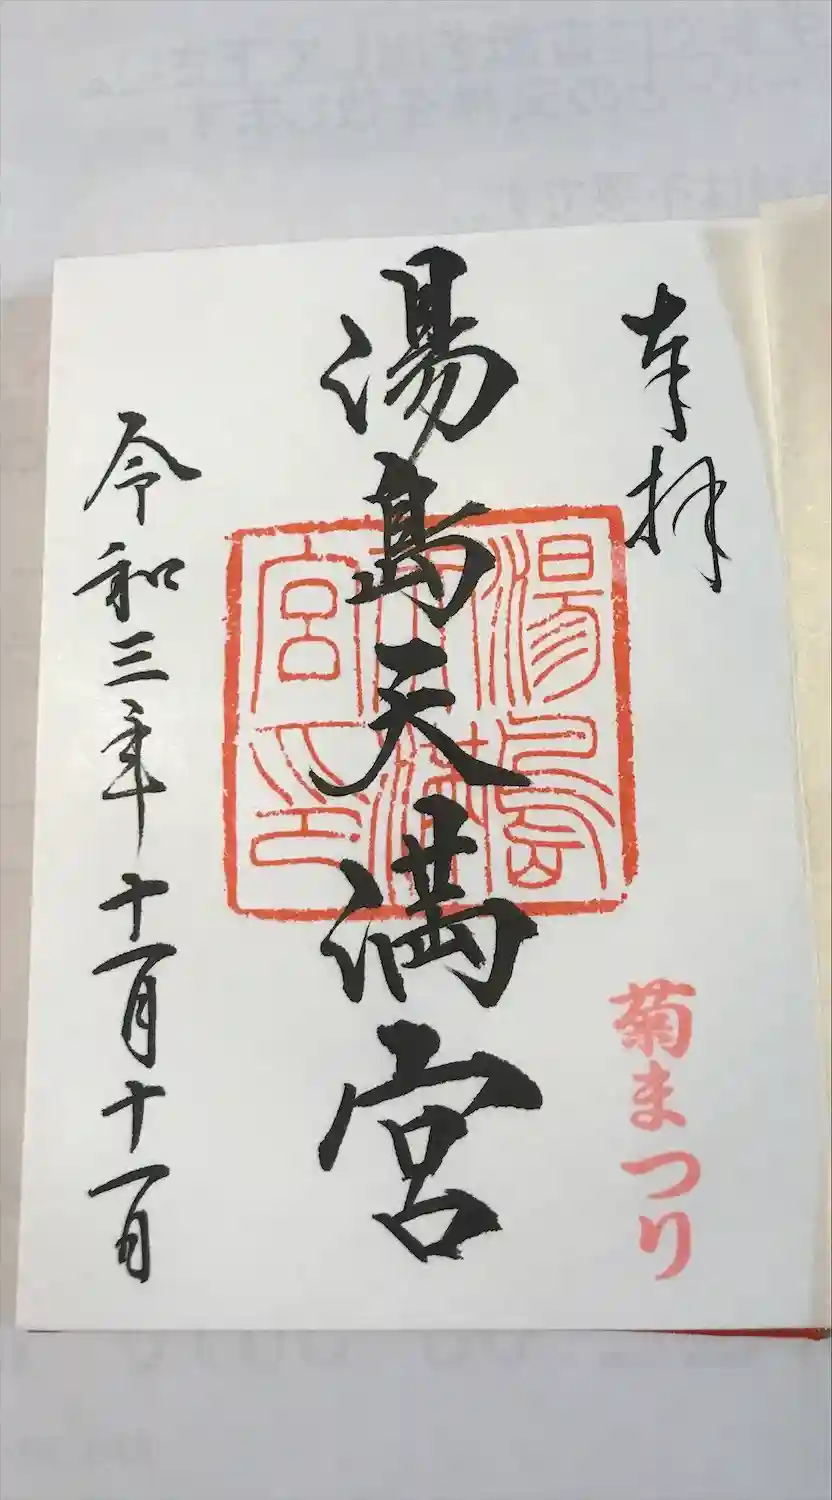 奉拝
菊まつり
湯島天満宮
湯島天満宮印
令和三年十一月十一日